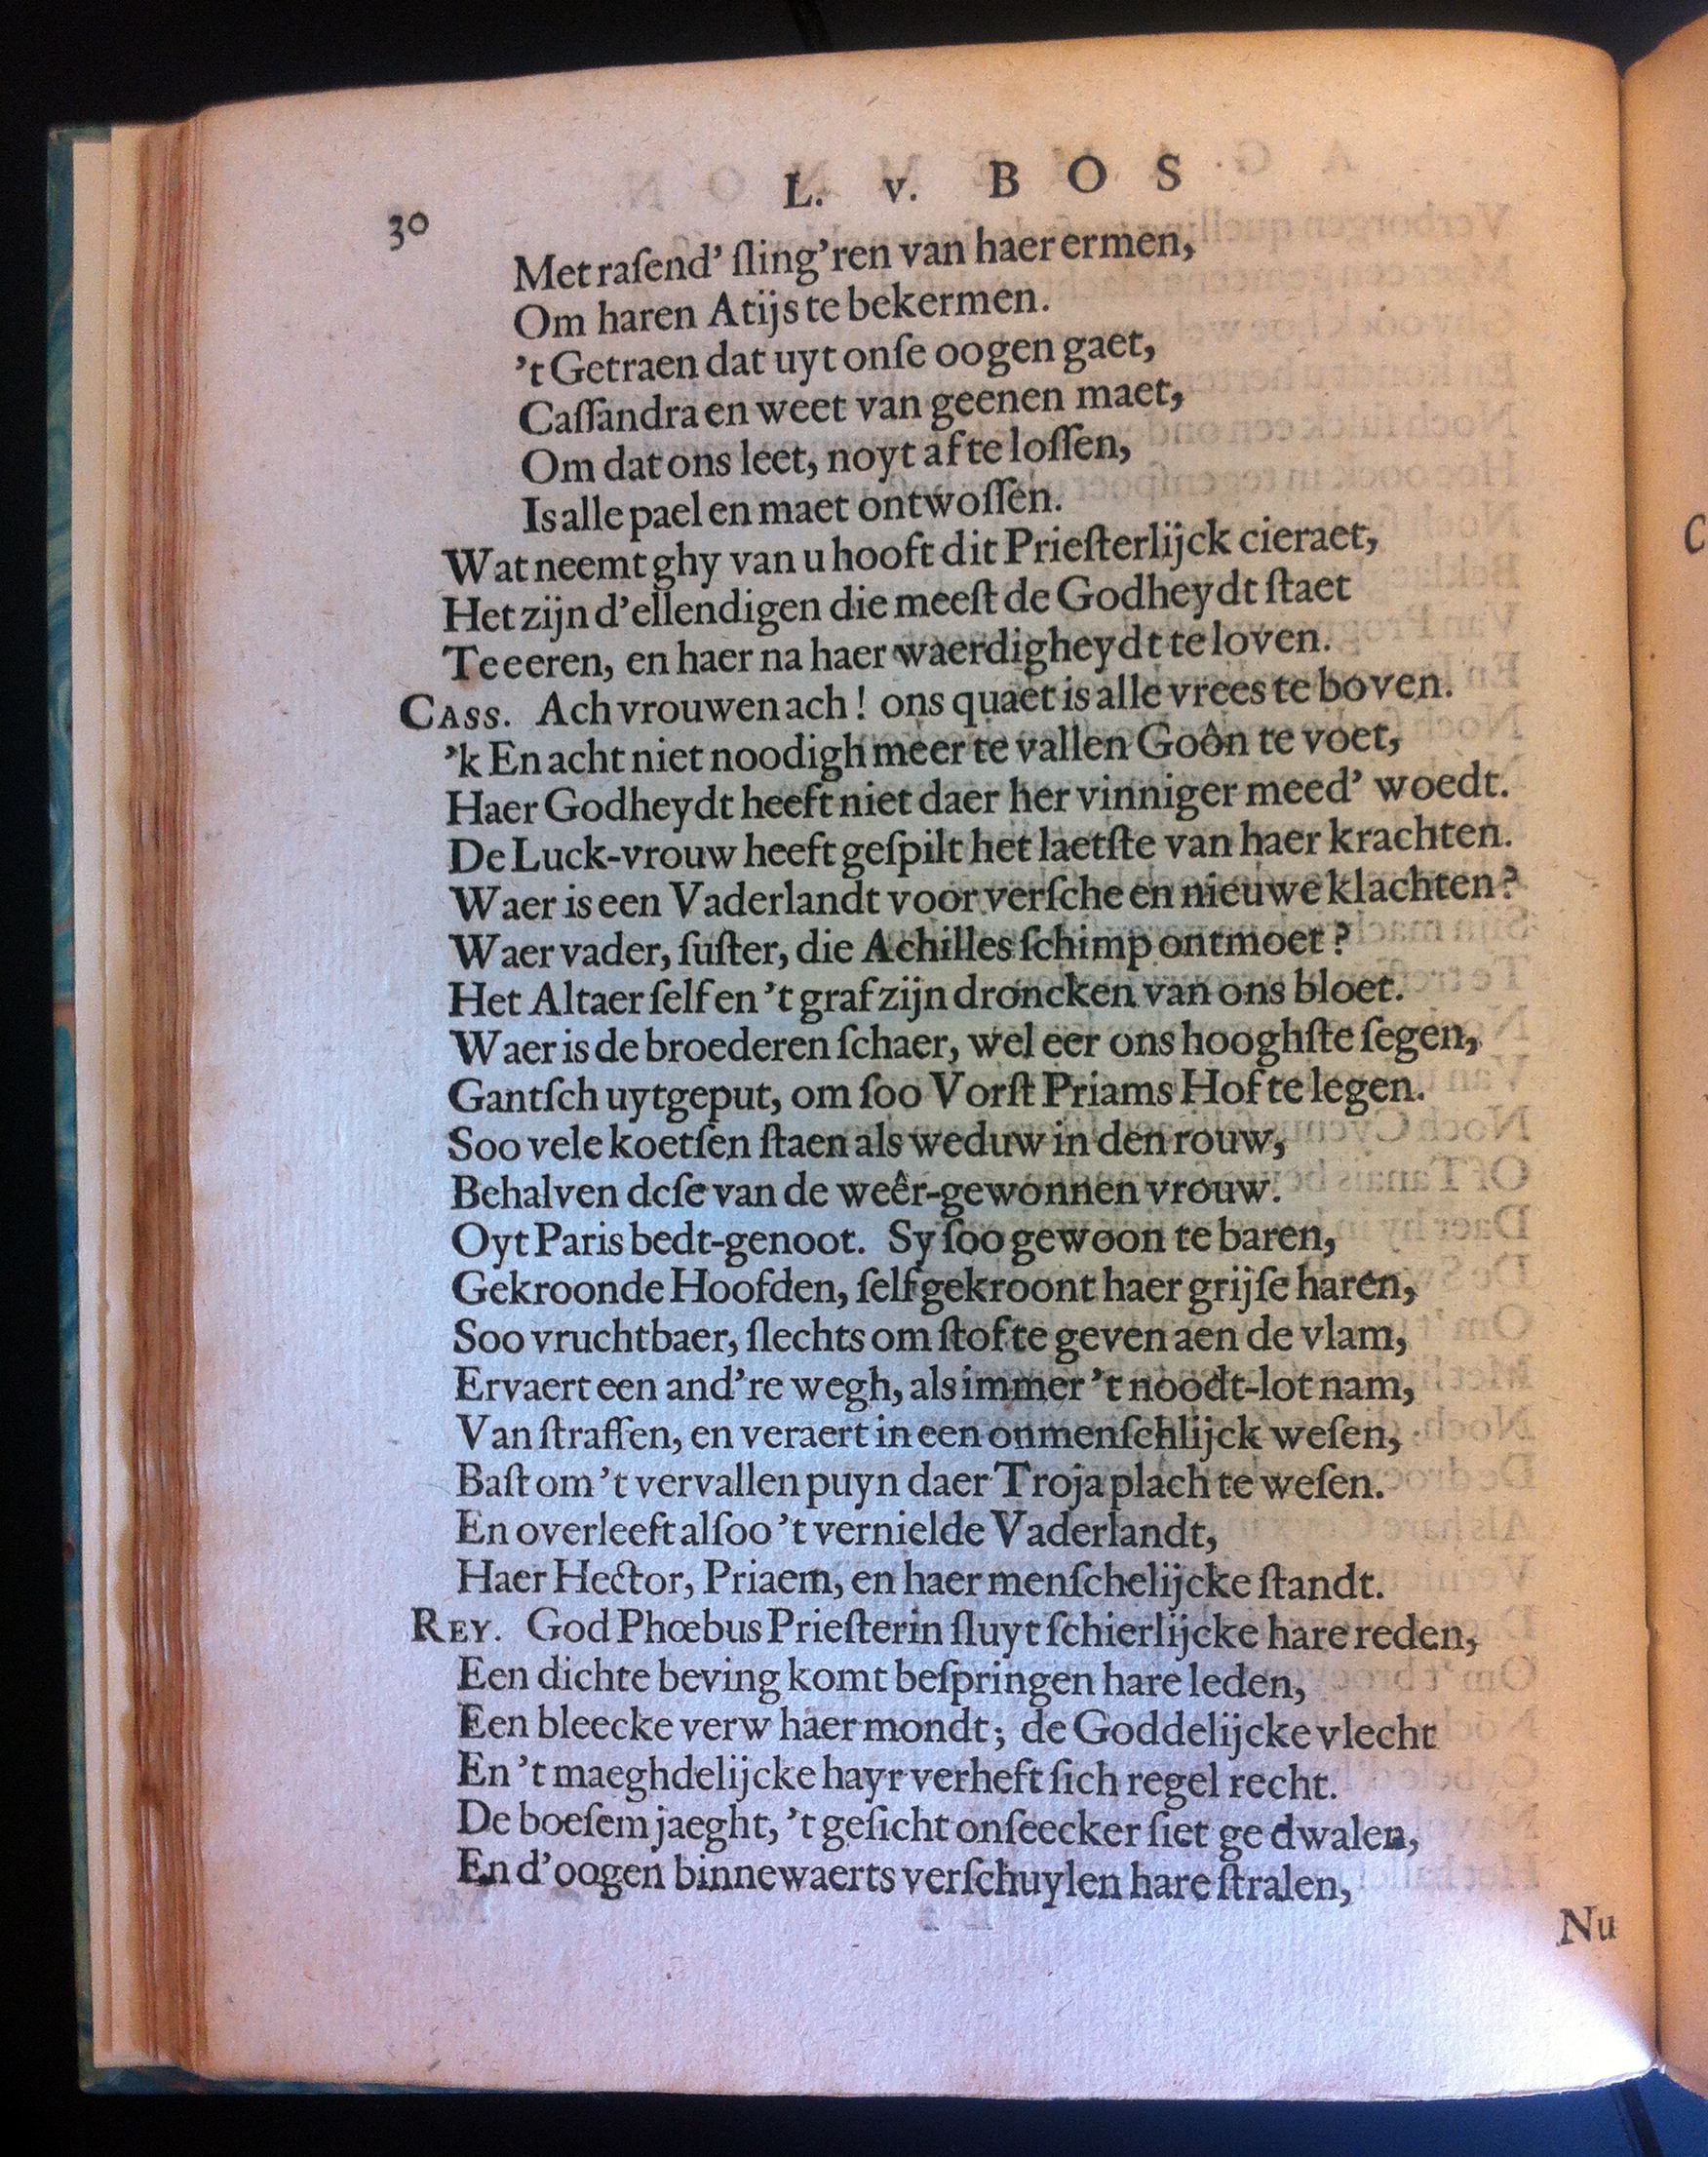 30
L. v. BOS
Met raſend' ſling'ren van haer ermen,
Om haren Atijs te bekermen.
't Getraen dat uyt onſe oogen gaet,
Caſſandra en weet van geenen maet,
Om dat ons leet, noyt af te loſſen,
Is alle pael en maet ontwoſſen.
Wat neemt ghy van u hooft dit Prieſterlijck cieraet,
Het zijn d'ellendigen die meeſt de Godheydt ſtaet
Te eeren, en haer na haer waerdigheydt te loven.
CASS. Ach vrouwen ach! ons quaet is alle vrees te boven.
'k En acht niet noodigh meer te vallen Goôn te voet,
Haer Godheydt heeft niet daer her vinniger meed' woedt.
De Luck-vrouw heeft geſpilt het laetſte van haer krachten.
Waer is een Vaderlandt voor verſche en nieuwe klachten?
Waer vader, ſuſter, die Achilles ſchimp ontmoet?
Het Altaer ſelf en 't graf zijn droncken van ons bloet.
Waer is de broederen ſchaer, wel eer ons hooghſte ſegen,
Gantſch uytgeput, om ſoo Vorſt Priams Hof te legen.
Soo vele koetſen ſtaen als weduw in den rouw,
Behalven dcſe van de weêr-gewonnen vrouw.
Oyt Paris bedt-genoot. Sy ſoo gewoon te baren,
Gekroonde Hoofden, ſelf gekroont haer grijſe haren,
Soo vruchtbaer, ſlechts om ſtof te geven aen de vlam,
Ervaert een and're wegh, als immer 't noodt-lot nam,
Van ſtraffen, en veraert in een onmenſchlijck weſen,
Baſt om 't vervallen puyn daer Troja plach te weſen.
En overleeft alſoo 't vernielde Vaderlandt,
Haer Hector, Priaem, en haer menſchelijcke ſtandt.
REY. God Phœbus Prieſterin ſluyt ſchierlijcke hare reden,
Een dichte beving komt beſpringen hare leden,
Een bleecke verw haer mondt; de Goddelijcke vlecht
En 't maeghdelijcke hayr verheft ſich regel recht.
De boeſem jaeght, 't geſicht onſeecker ſiet ge dwalen,
En d'oogen binnewaerts verſchuylen hare ſtralen,
Nu